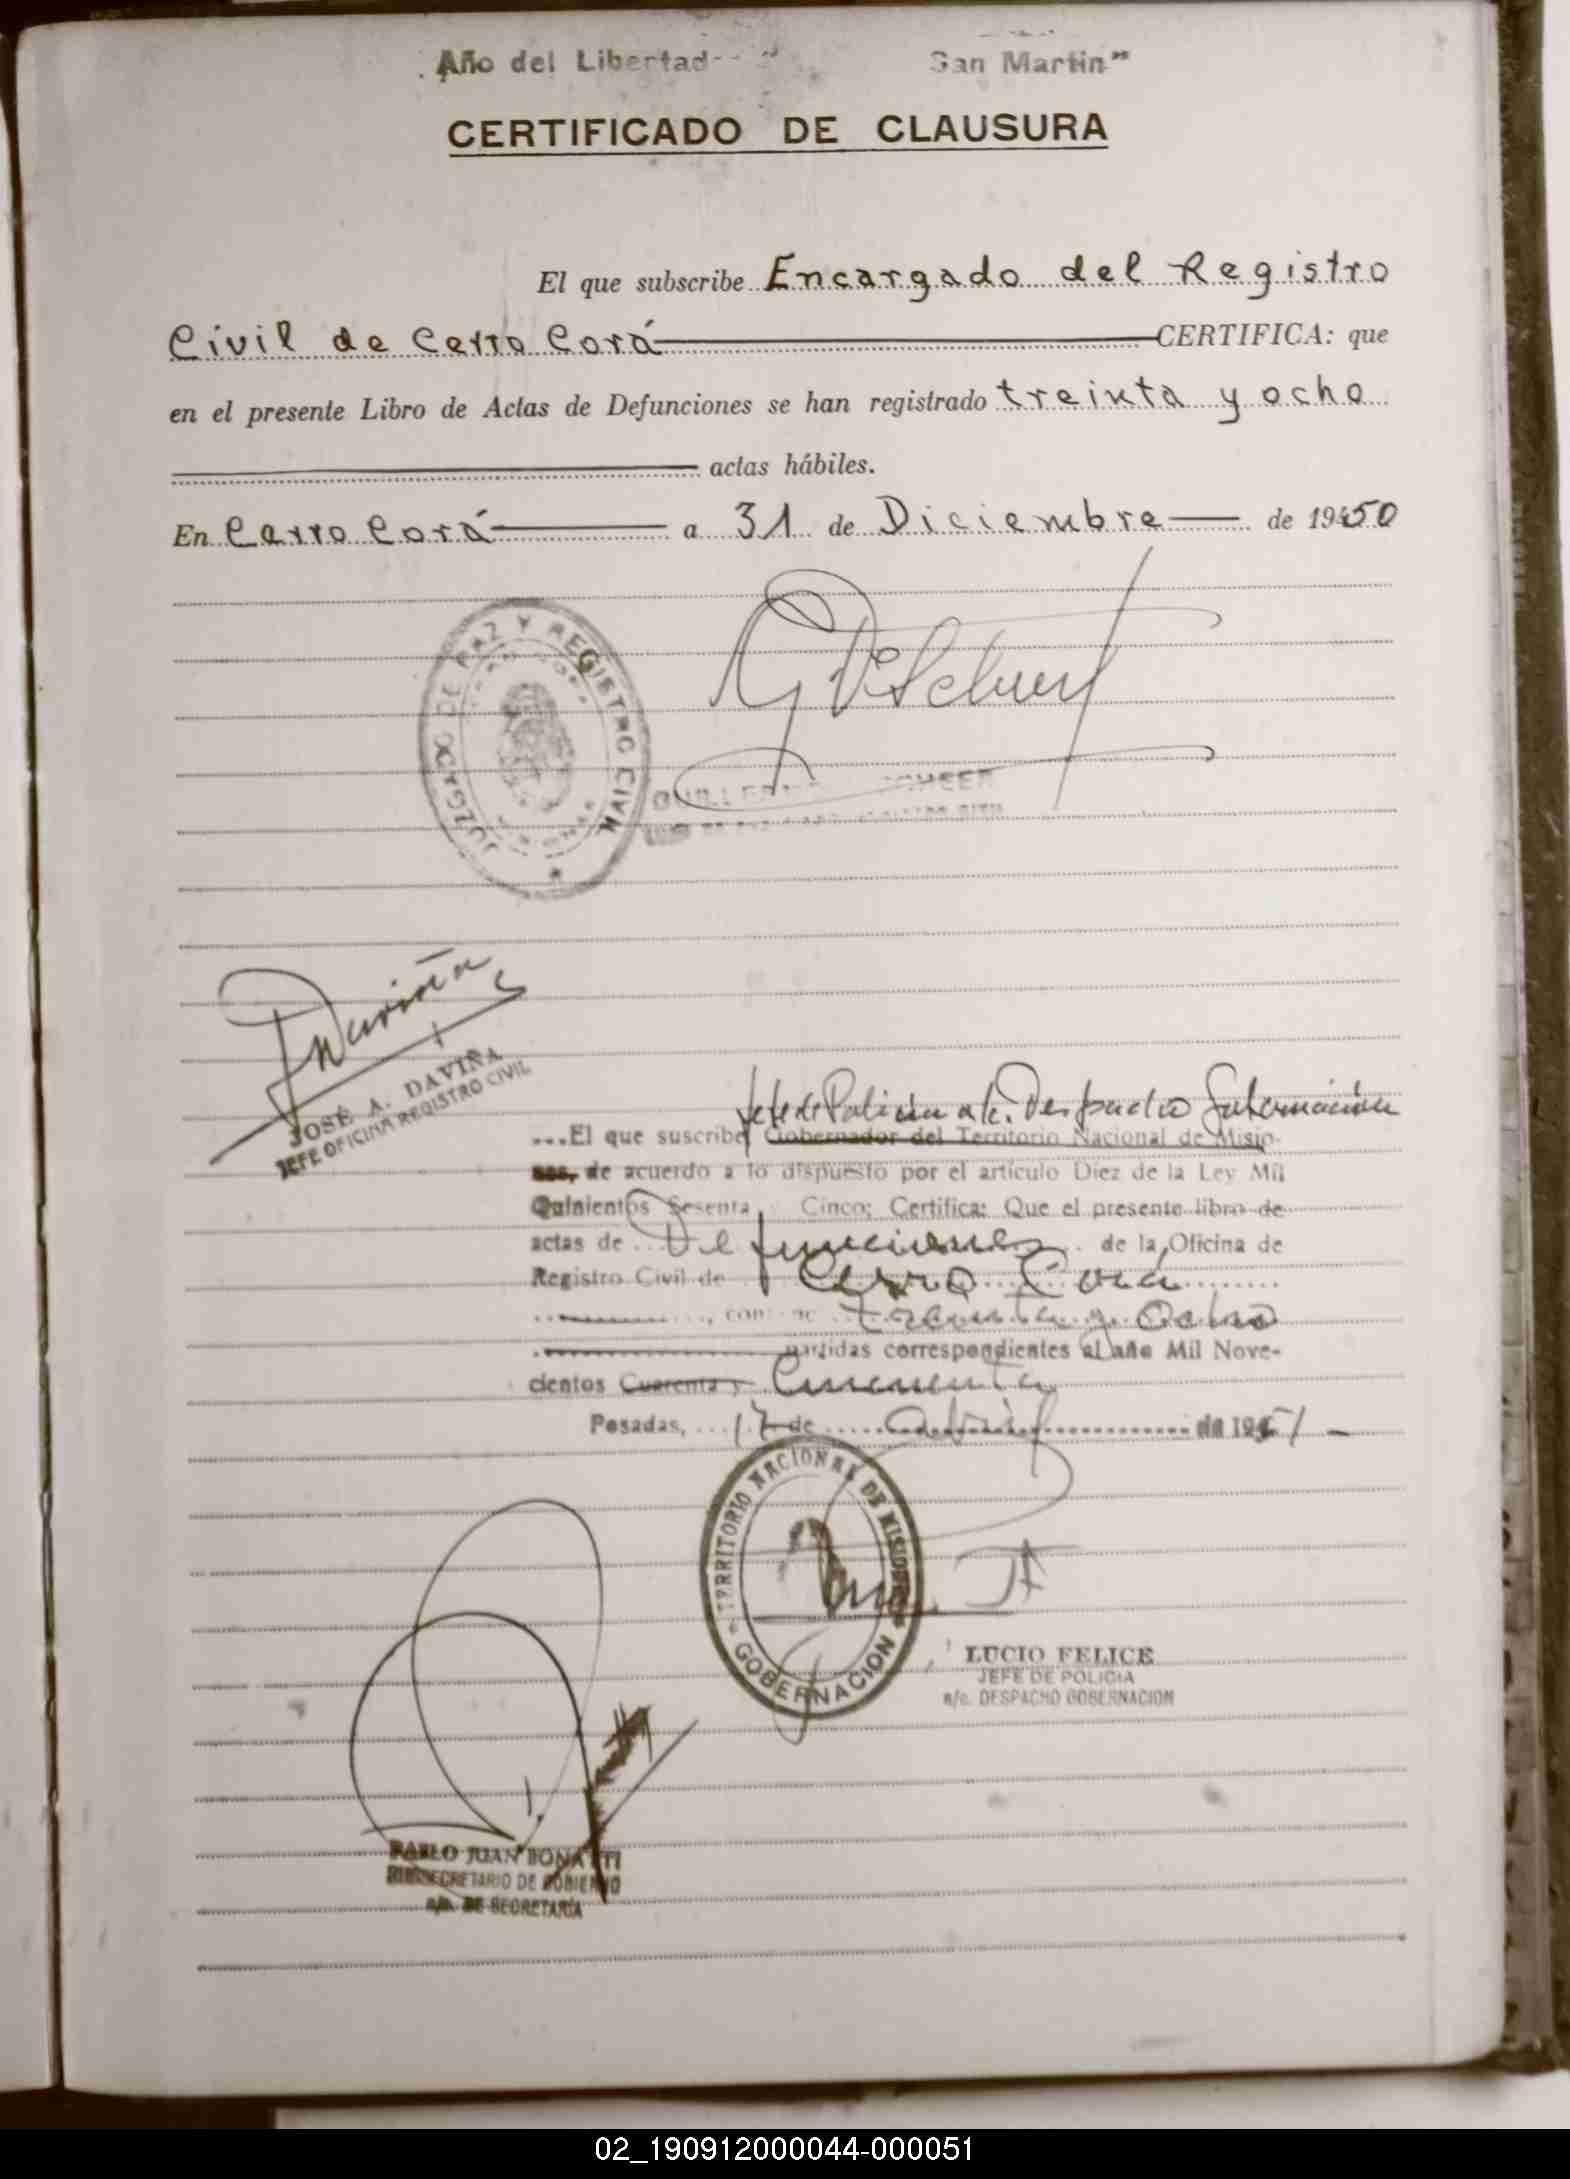 Año del Libertad
San Martin"
CERTIFICADO DE CLAUSURA
El que subscribe Encargado del Registro
Civil de Cerro Corá CERTIFICA: que
en el presente Libro de Actas de Defunciones se han registrado treinta y ocho
actas hábiles.
En Cerro Corá a 31 de Diciembre de 1950
JUZGADO DE PAZ Y REGISTRO CIVIL
JOSÉ A. DAVIÑA
JEFE OFICINA REGISTRO CIVIL
Jefe de Policia a/c. Despacho Gobernación
...El que suscribe Gobernador del Territorio Nacional de Misio-
nes, de acuerdo a lo dispuesto por el artículo Diez de la Ley Mil
Quinientos Sesenta Cinco; Certifica: Que el presente libro de
actas de Defunciones de la Oficina de
Registro Civil de Cerro Corá
treinta y ocho
partidas correspondientes al año Mil Nove-
cientos Cuarenta y Cincuenta
Posadas, 17 de abril de 1951
TERRITORIO NACIONAL DE MISIONES
GOBERNACION
LUCIO FELICE
JEFE DE POLICIA
a/c. DESPACHO GOBERNACION
PABLO JUAN BONATTI
SUBSECRETARIO DE GOBIERNO
a/c. DE SECRETARÍA
02_190912000044-000051